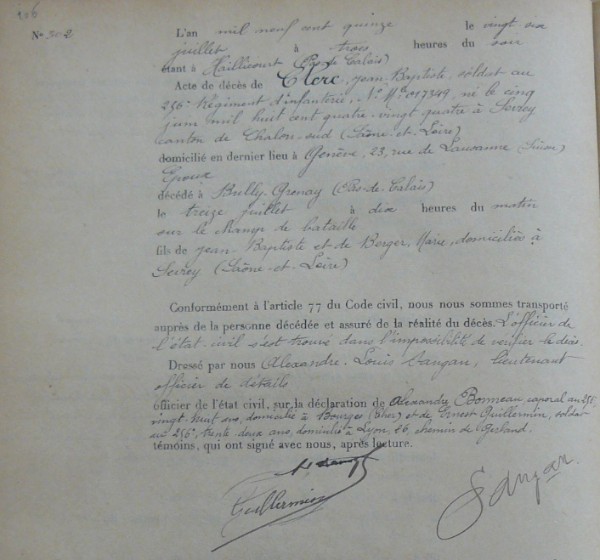 206
N° 302
L'an mil neuf cent quinze le vingt six
juillet à trois heures du soir
étant à Haillicourt (Pas de Calais)
Acte de décès de Clerc, Jean-Baptiste, soldat au
256e Régiment d'infanterie, N° Mle 017349, né le cinq
juin mil huit cent quatre-vingt quatre à Sevrey
canton de Chalon-sud (Saône-et-Loire)
domicilié en dernier lieu à Genève, 23, rue de Lausanne (Suisse)
Époux
décédé à Bully-Grenay (Pas-de-Calais)
le treize juillet à dix heures du matin
sur le champ de bataille
fils de Jean-Baptiste et de Berger, Marie, domiciliés à
Sevrey (Saône-et-Loire)
Conformément à l'article 77 du Code civil, nous nous sommes transporté
auprès de la personne décédée et assuré de la réalité du décès. L'officier de
l'état civil s'est trouvé dans l'impossibilité de vérifier le décès
Dressé par nous Alexandre-Louis Sangan, lieutenant
officier de détails
officier de l'état civil, sur la déclaration de Alexandre Bonneau, caporal au 256e,
vingt huit ans, domicilié à Bourges (Cher) et de Ernest Guillermin, soldat
au 256e, trente deux ans, domicilié à Lyon, 26, chemin de Gerland.
témoins, qui ont signé avec nous, après lecture.
Guillermin
Sangan